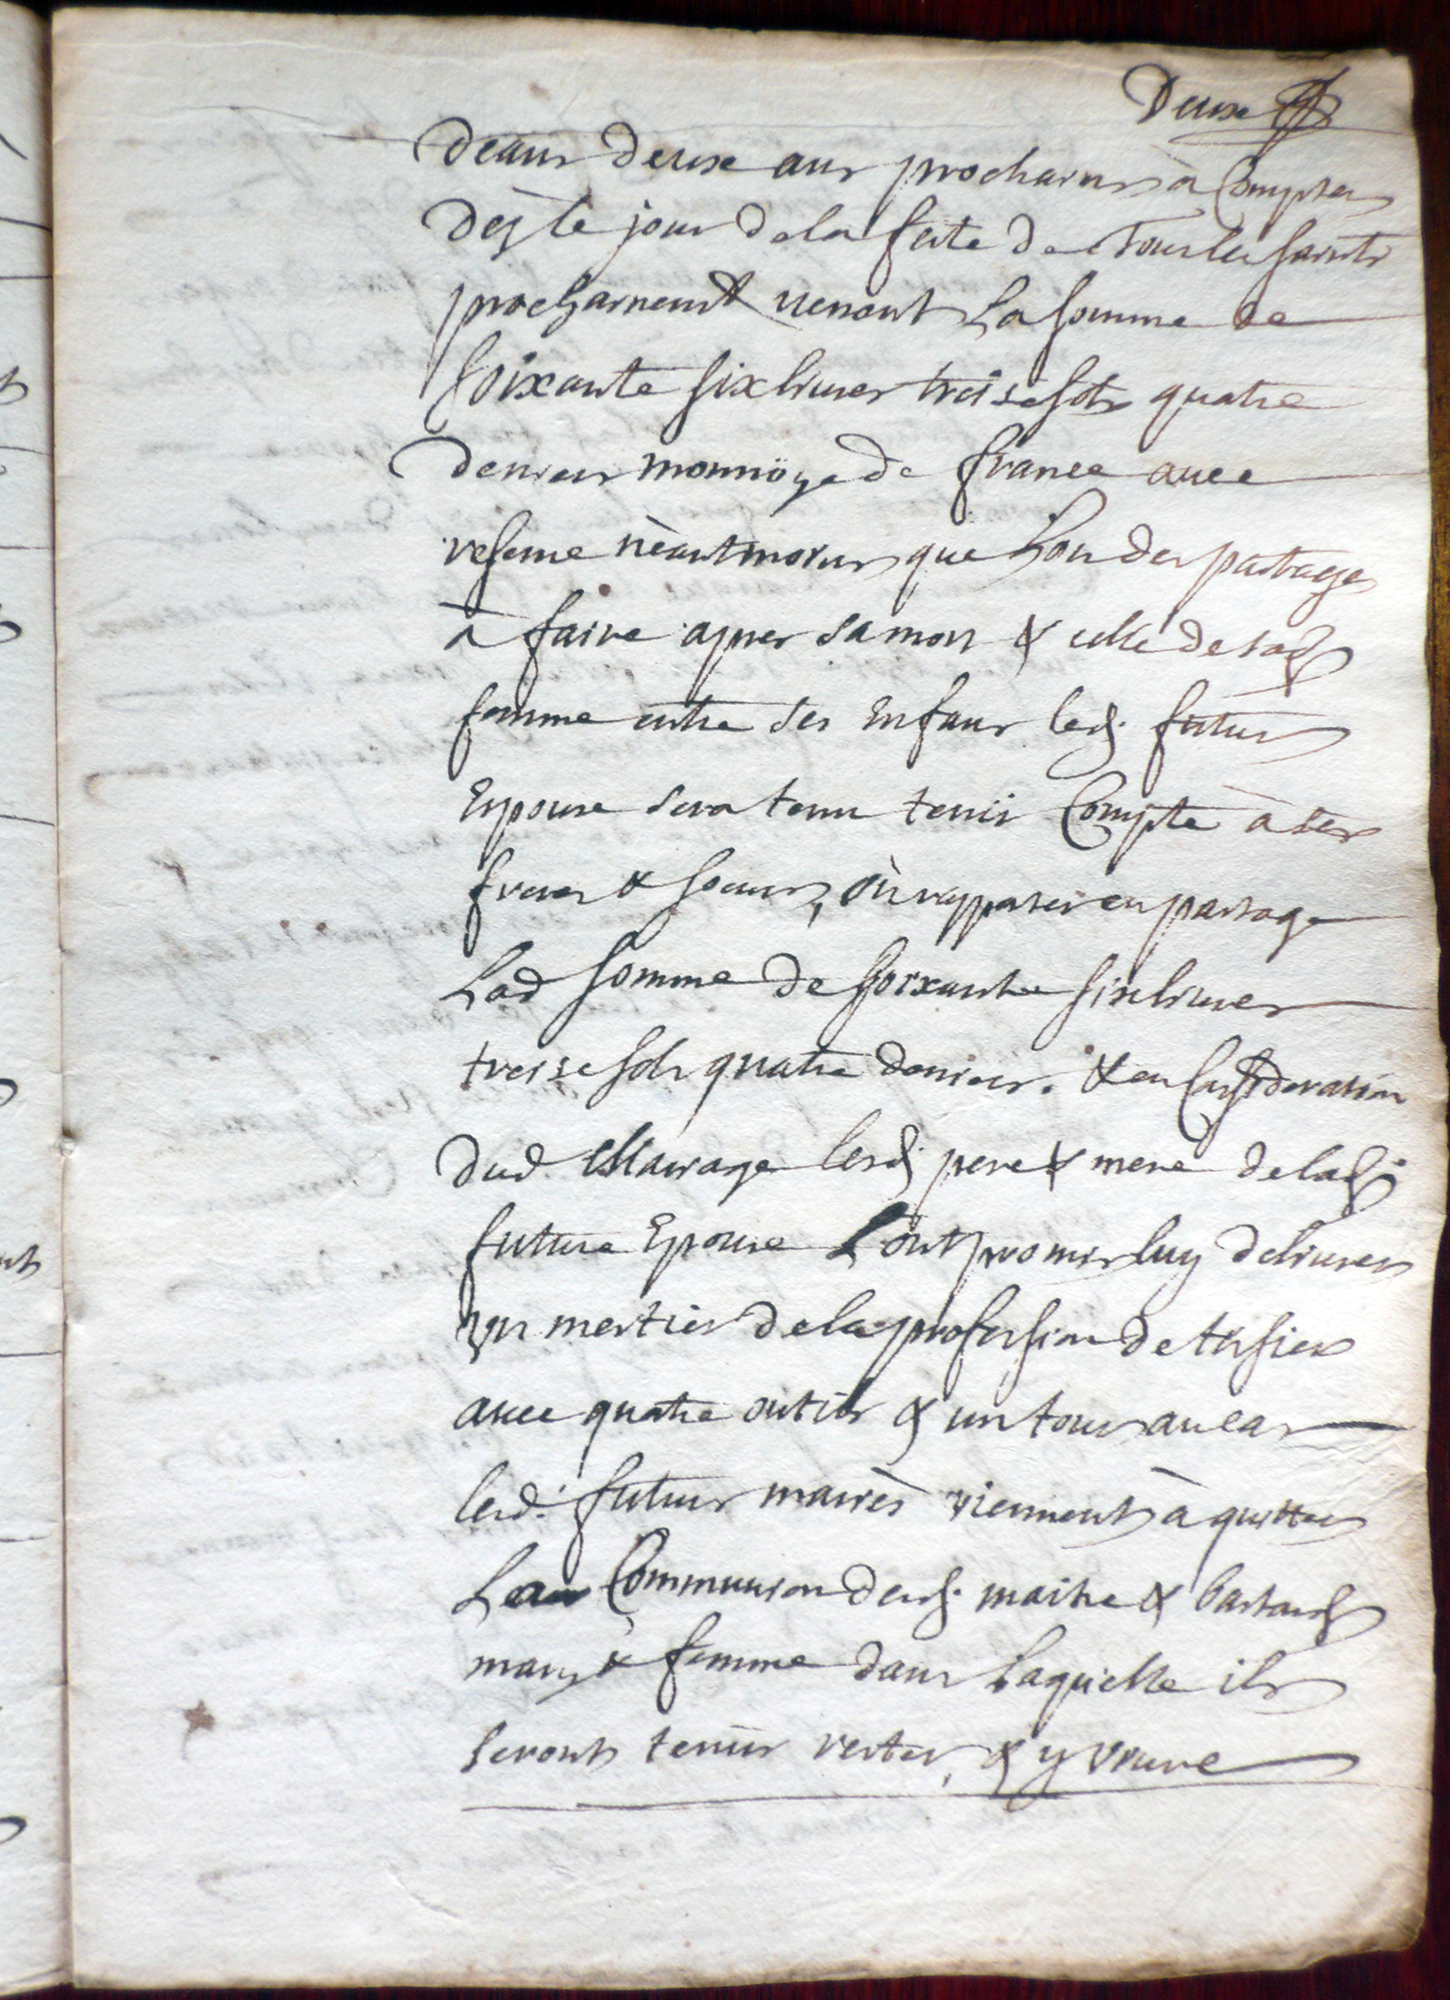 Deuxe
deans deuxe ans prochains à Compter
dez le jour de la feste de Tous les saints
prochainemt venant La somme de
soixante six livres treise sols quatre
deniers monnöye de france avec
reserue nèantmoins que Lors des partages
à faire apres sa mort & celle de sad
femme entre ses Enfans led. futur
Espoux sera tenu tenir Compte à ses
freres & soeurs, où rapporter en partage
Lad somme de soixante six livres
treise sols quatre deniers. & en Consideration
dud Mariage lesd pere & mere de lad.
future Epouse L'ont promis luy delivrer
un mestier de la profession de tissier
avec quatre outils & un tour au cas
lesd. futurs mariès viennent à quitter
La Communion desd. maitre & bastard
mary & femme dans Laquelle ils
seront tenus rester, & y vivre